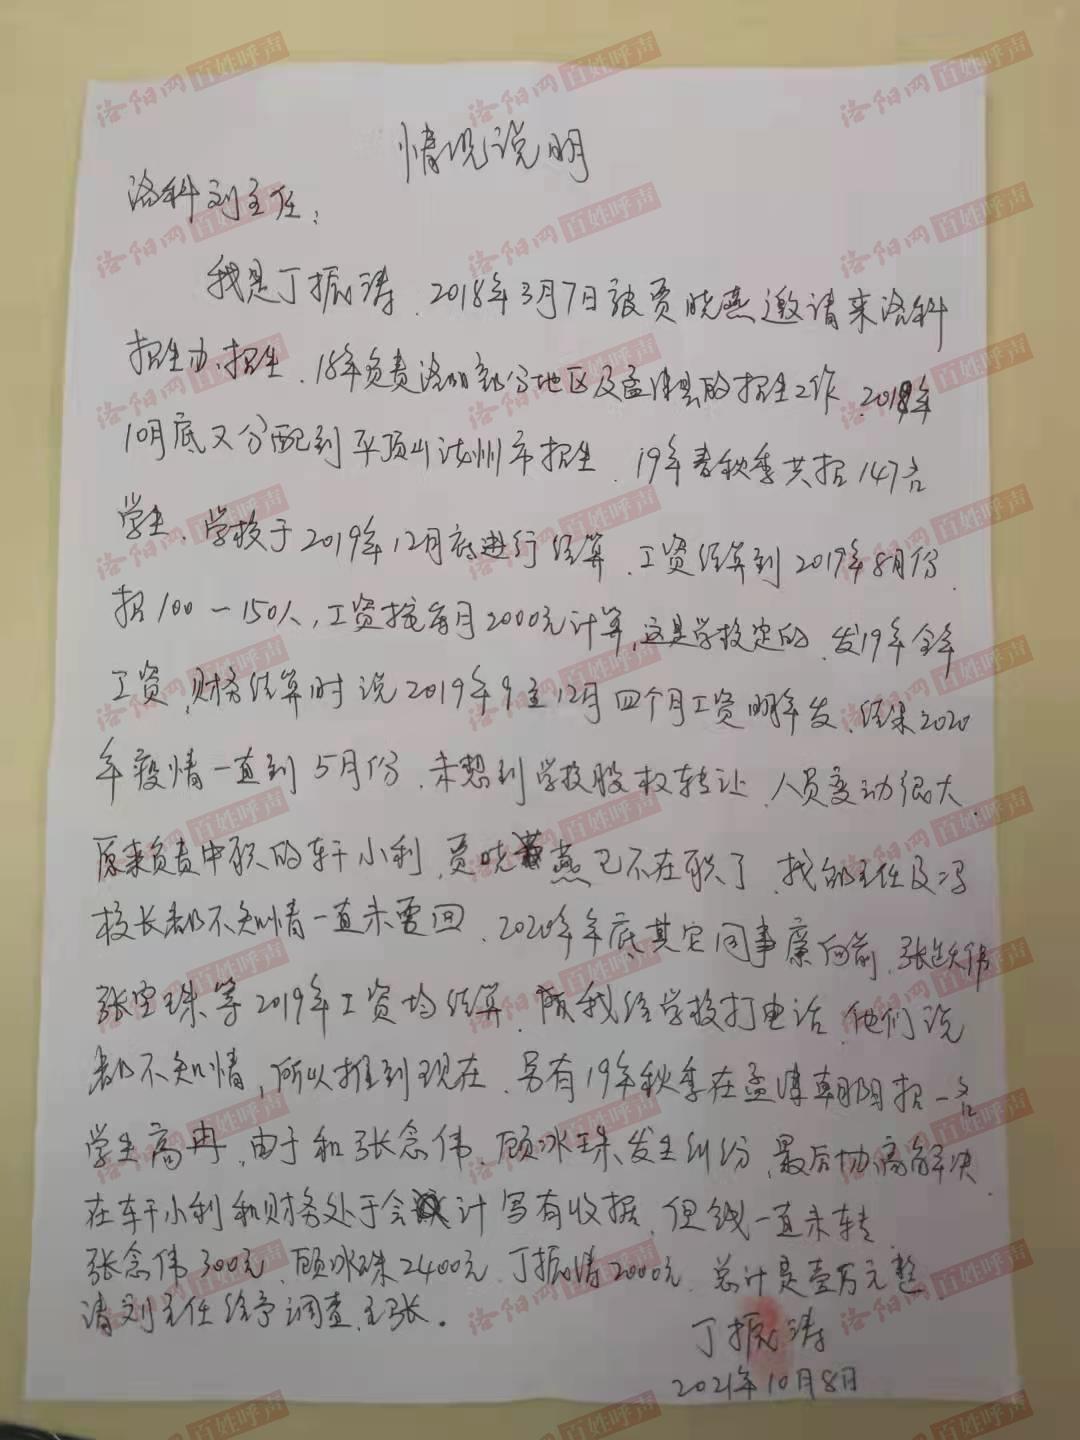 情况说明
洛科刘主任：
我是丁振涛、2018年3月7日被贾晓燕邀请来洛科
招生办、招生、18年负责洛阳部分地区及孟津县的招生工作、2018年
10月底又分配到平顶山汝州市招生、19年春秋季共招147名
学生、学校于2019年12月底进行结算、工资结算到2019年8月份、
招100一150人，工资按每月2000元计算，这是学校定的、发19年全年
工资，财务结算时说2019年9至12月四个月工资明年发、结果2020
年疫情一直到5月份、未想到学校股权转让、人员变动很大
原来负责中职的轩小利，贾晓燕已不在职了、找主任及冯
校长都不知情一直未要回、2020年年底其它同事廉向前，张跃伟
张宝珠等2019年工资均结算、我给学校打电话、他们说
都不知情，所以推到现在、另有19年秋季在孟津朝阳招一名
学生高冉，由于和张念伟、顾冰珠发生纠纷、最后协商解决
在轩小利和财务处于会计写有收据、但钱一直未转
张念伟300元、顾冰珠2400元、丁振涛2000元、总计是壹万元整、
请刘主任给予调查、主张。
丁振涛
2021年10月8日
洛阳网 百姓呼声